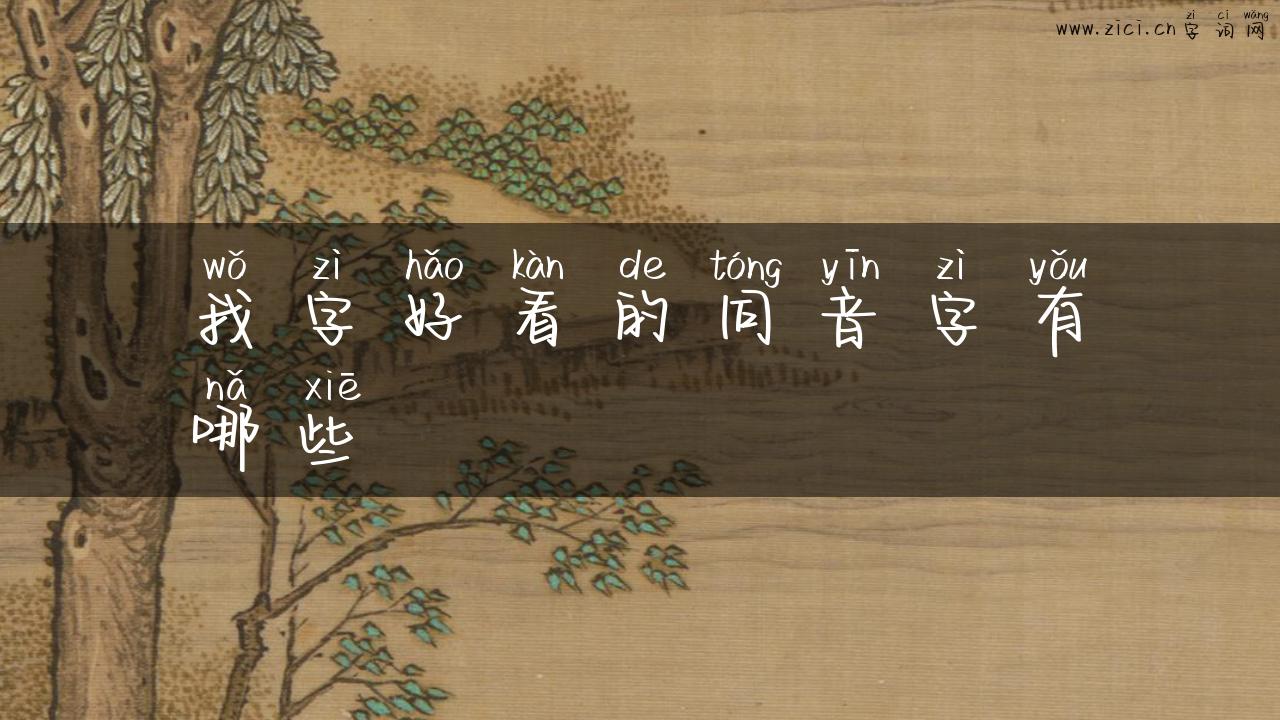 zì cí wǎng
www.zici.cn 字词网
wǒ zì hǎo kàn de tóng yīn zì yǒu
找字好看的同音字有
nǎ xiē
哪些